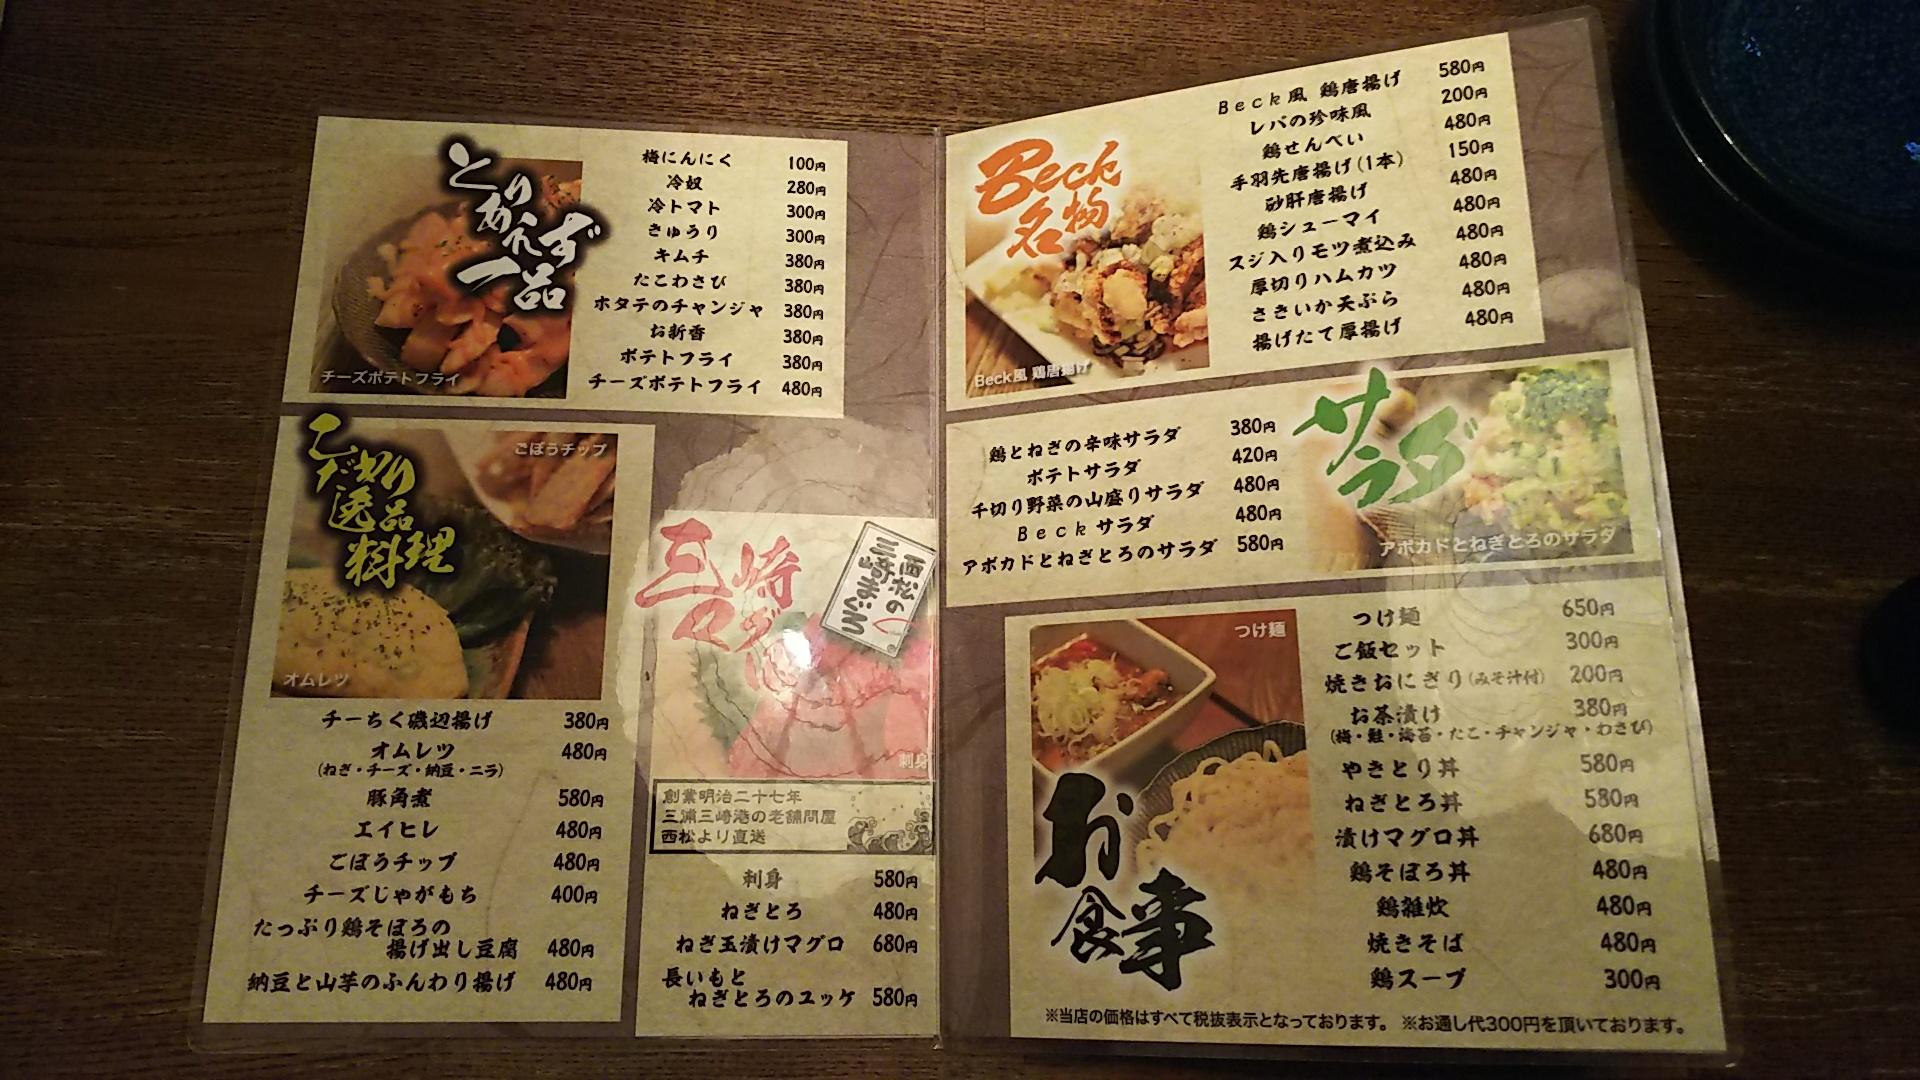 とりあえず一品
チーズポテトフライ
梅にんにく 100円
冷奴 280円
冷トマト 300円
きゅうり 300円
キムチ 380円
たこわさび 380円
ホタテのチャンジャ 380円
お新香 380円
ポテトフライ 380円
チーズポテトフライ 480円
こだわり逸品料理
ごぼうチップ
オムレツ
チーちく磯辺揚げ 380円
オムレツ 480円
(ねぎ・チーズ・納豆・ニラ)
豚角煮 580円
エイヒレ 480円
ごぼうチップ 480円
チーズじゃがもち 400円
たっぷり鶏そぼろの
揚げ出し豆腐 480円
納豆と山芋のふんわり揚げ 480円
三崎
西松の
三崎まぐろ
刺身
創業明治二十七年
三浦三崎港の老舗問屋
西松より直送
刺身 580円
ねぎとろ 480円
ねぎ玉漬けマグロ 680円
長いもと
ねぎとろのユッケ 580円
Beck名物
Beck風 鶏唐揚げ
Beck風 鶏唐揚げ 580円
レバの珍味風 200円
鶏せんべい 480円
手羽先唐揚げ(1本) 150円
砂肝唐揚げ 480円
鶏シューマイ 480円
スジ入りモツ煮込み 480円
厚切りハムカツ 480円
さきいか天ぷら 480円
揚げたて厚揚げ 480円
サラダ
アボカドとねぎとろのサラダ
鶏とねぎの辛味サラダ 380円
ポテトサラダ 420円
千切り野菜の山盛りサラダ 480円
Beckサラダ 480円
アボカドとねぎとろのサラダ 580円
お食事
つけ麺
つけ麺 650円
ご飯セット 300円
焼きおにぎり(みそ汁付) 200円
お茶漬け 380円
(梅・鮭・海苔・たこ・チャンジャ・わさび)
やきとり丼 580円
ねぎとろ丼 580円
漬けマグロ丼 680円
鶏そぼろ丼 480円
鶏雑炊 480円
焼きそば 480円
鶏スープ 300円
※当店の価格はすべて税抜表示となっております。 ※お通し代300円を頂いております。